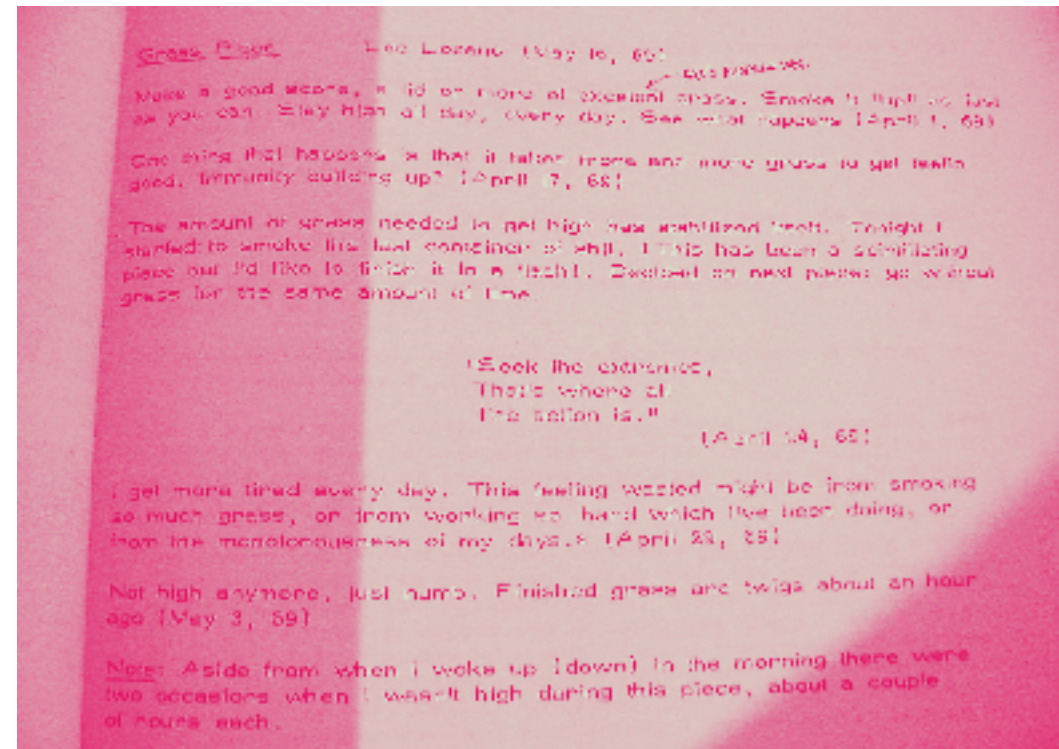 Grass Piece Lee Lozano (May 16, 69)
Make a good score, a lid or more of excellent grass. Smoke it "up" as fast
as you can. Stay high all day, every day. See what happens (April 1, 69)
One thing that happens is that it takes more and more grass to get feelin
good. Immunity building up? (April 17, 69)
The amount of grass needed to get high has stabilized itself. Tonight I
started to smoke the last container of shit. (This has been a scintillating
piece but I'd like to finish it in a flash!). Decided on next piece: go without
grass for the same amount of time.
"Seek the extremes,
That's where all
the action is."
(April 24, 69)
I get more tired every day. This feeling wasted might be from smoking
so much grass, or from working so hard which I've been doing, or
from the monotonousness of my days. (April 29, 69)
Not high anymore, just numb. Finished grass and twigs about an hour
ago (May 3, 69)
Note: Aside from when I woke up (down) in the morning there were
two occasions when I wasn't high during this piece, about a couple
of hours each.